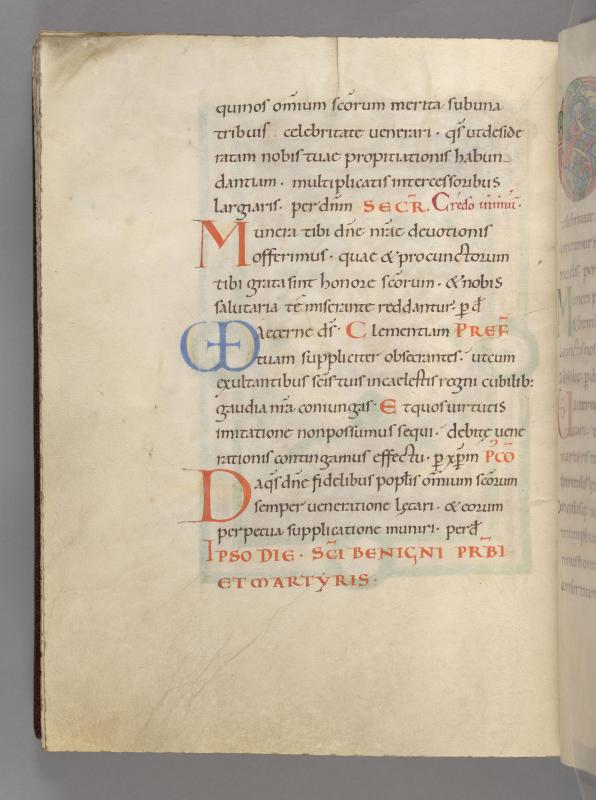 qui nos om̄ium sc̄orum merita sub una
tribuis celebritate uenerari · qs̄ ut deside
ratam nobis tuae propitiationis habun
dantiam · multiplicatis intercessoribus
largiaris · per dn̄m SECR̄. Credo
Munera tibi dn̄e nr̄ae deuotionis
offerimus · quae & pro cunctorum
tibi grata sint honore sc̄orum · & nobis
salutaria te miserante reddantur · p d̄
aeterne ds̄ · Clementiam PREF̄
tuam suppliciter obsecrantes · ut cum
exultantibus sc̄is tuis in caelestis regni cubilib:
gaudia nr̄a coniungas · Et quos uirtutis
imitatione non possumus sequi · debite uene
rationis contingamus effectu · p xp̄m PC̄O
Da qs̄ dn̄e fidelibus popl̄is om̄ium sc̄orum
semper ueneratione lętari · & eorum
perpetua supplicatione muniri · per d̄
IPSO DIE · SC̄I BENIGNI PRB̄I
ET MARTYRIS ·